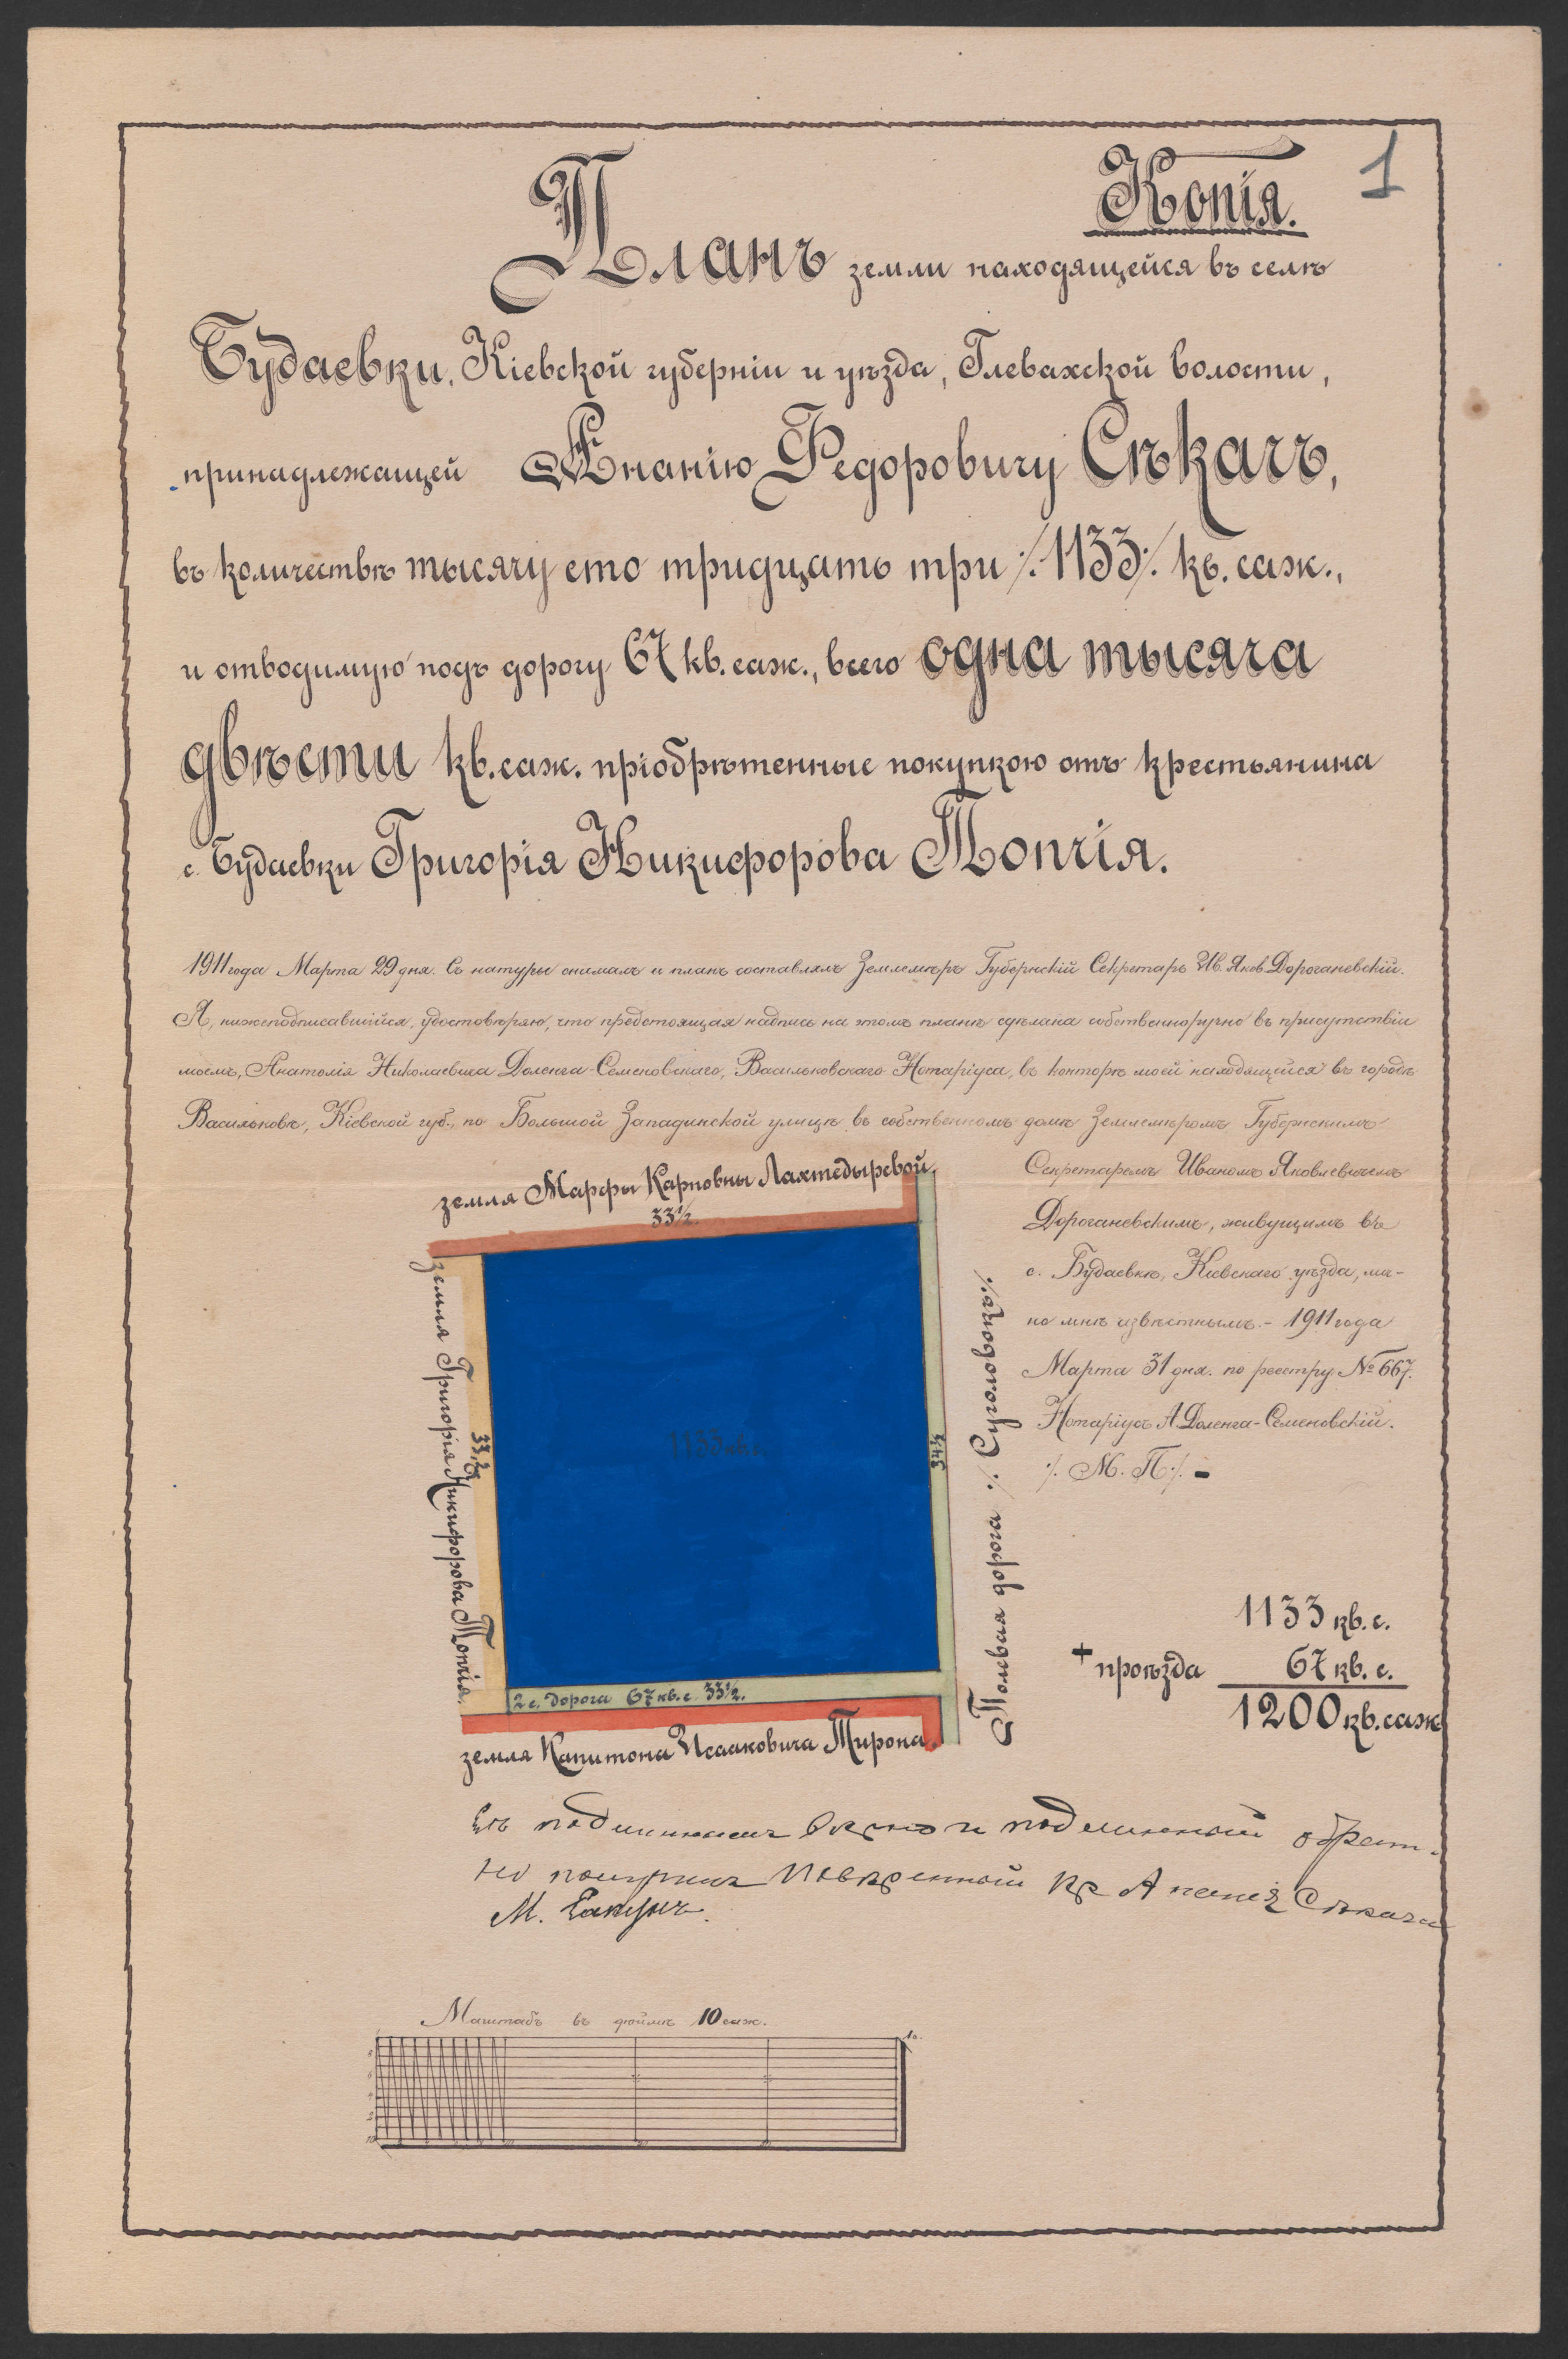 Копія.
1
Планъ земли находящейся въ селѣ
Будаевки, Кіевской губерніи и уѣзда, Глевахской волости,
принадлежащей Ананію Федоровичу Сѣкачъ,
въ количествѣ тысячу сто тридцать три ./.1133./. кв. саж.,
и отводимую подъ дорогу 67 кв. саж., всего одна тысяча
двѣсти кв. саж. пріобрѣтенные покупкою отъ крестьянина
с. Будаевки Григорія Никифорова Топчія.
1911 года Марта 29 дня. Съ натуры снималъ и планъ составлялъ Землемѣръ Губернскій Секретарь Ив. Яков. Дороганевскій.
Я, нижеподписавшійся, удостовѣряю, что предстоящая надпись на этомъ планѣ сдѣлана собственноручно въ присутствіи
моемъ, Анатолія Николаевича Доленга-Семеновскаго, Васильковскаго Нотаріуса, въ конторѣ моей находящейся въ городѣ
Васильковѣ, Кіевской губ., по Большой Западинской улицѣ въ собственномъ домѣ Землемѣромъ Губернскимъ
Секретаремъ Иваномъ Яковлевичемъ
Дороганевскимъ, живущимъ въ
с. Будаевкѣ, Кіевскаго уѣзда, ли-
но мнѣ извѣстнымъ.- 1911 года
Марта 31 дня. по реестру № 667.
Нотаріусъ А. Доленга-Семеновскій.
./. М. П. ./.
земля Марфы Карповны Лахтедыревой.
33½
земля Григорія Никифорова Топчія.
33½
1133 кв. с.
34½
Полевая дорога ./. Суголовокъ ./.
2 с. дорога 67 кв. с. 33½.
земля Капитона Исааковича Тирона.
1133 кв. с.
+ проѣзда 67 кв. с.
1200 кв. саж
Съ подлиннымъ вѣрно и подлинный обрат-
но получилъ Повѣренный кр Ананія Сѣкача
М.
Масштабъ въ дюймѣ 10 саж.